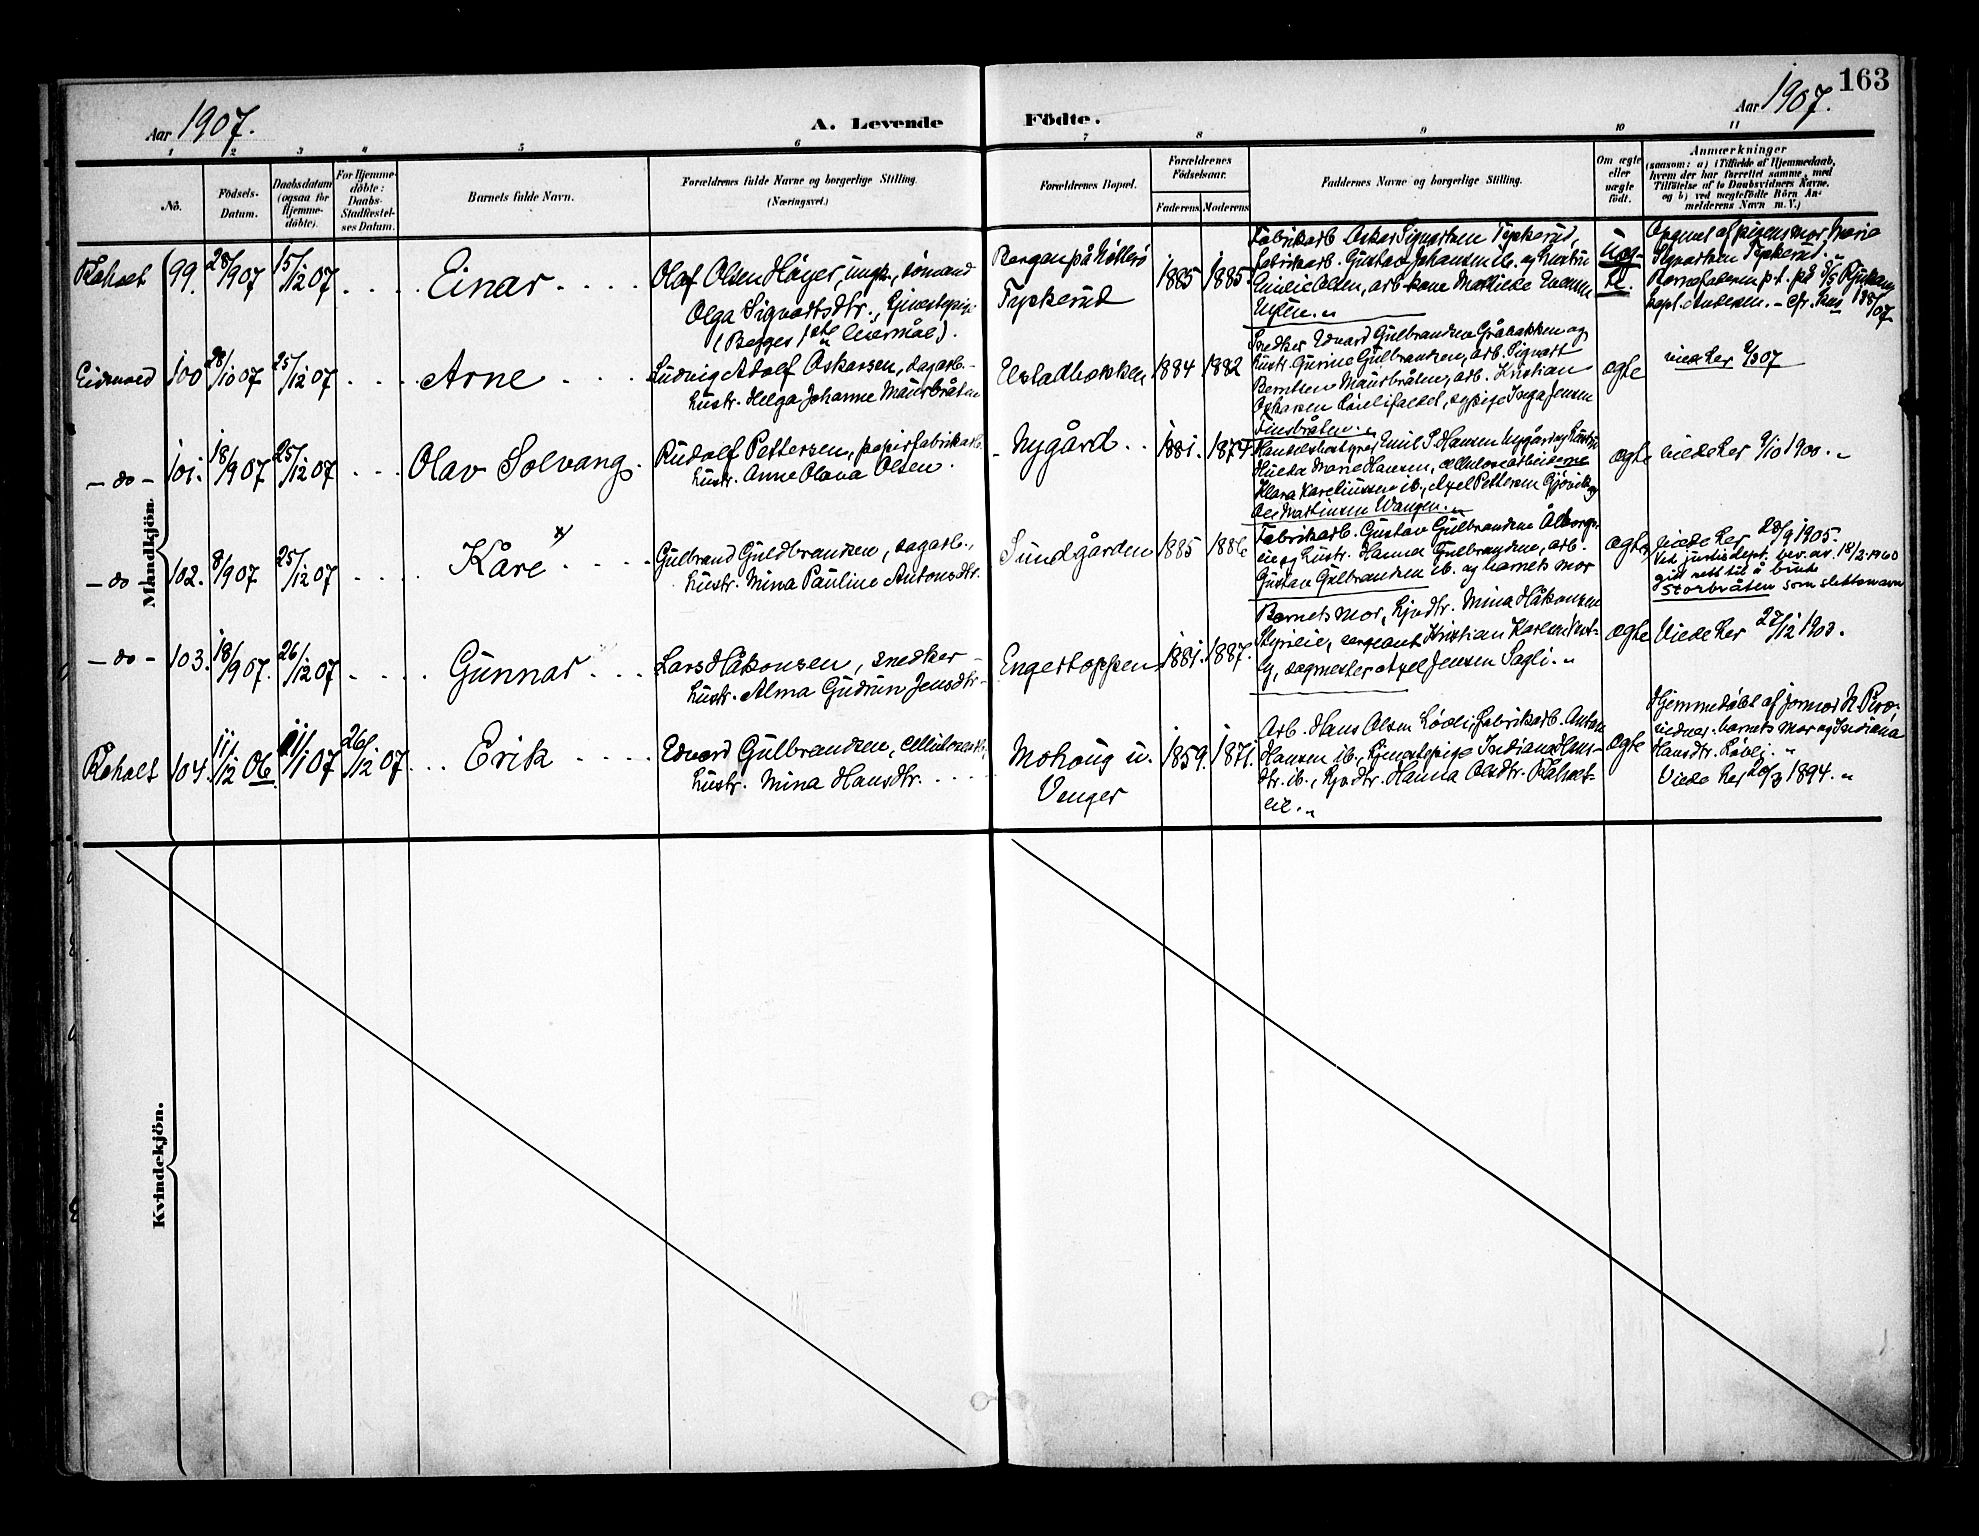 163
Aar 1907.
A. Levende Födte.
Aar 1907.
1 2 3 4 5 6 7 8 9 10 11
No.
Födsels-Datum.
Daabsdatum (ogsaa for Hjemme-döbte).
For Hjemme-döbte: Daabs-Stadfæstel-ses Datum.
Barnets fulde Navn.
Forældrenes fulde Navne og borgerlige Stilling.
(Næringsvei.)
Forældrenes Bopæl.
Forældrenes Födselsaar.
Faderens Moderens
Faddernes Navne og borgerlige Stilling.
Om ægte eller uægte födt.
Anmærkninger
(saasom: a) i Tilfælde af Hjemmedaab,
hvem der har forrettet samme, med
Tilföielse af to Daabsvidners Navne,
og b) ved uægtefödte Börn An-
melderens Navn m. V.)
Mandkjön.
Råholt 99. 28/9 07 15/12 07 . . . . Einar . . . .
Olaf Olsen Høyer, ungk., sömand
Olga Sigvartsdtr., Tjenestepige
(Begges 1ste leiermål).
Bergan på Nötterö
Tyskerud
1885 1885.
Fabrikarb. Oskar Sigvartsen Tyskerud,
Fabrikarb. Gustav Johansen ib. og hustru
Emilie Olsen, arb. kone Mathilde
uæg-
te.
Opgivet af pigens mor, Marie
Sigvartsen Tyskerud.
Barnefaderen p. t. på
kapt. Andersen.
Eidsvold 100 28/10 07 25/12 07 . . . . Arne . . . .
Ludvig Adolf Oskarsen, dagarb.
hustr. Helga Johanne Maursbråten
Elstadbakken 1884 1882
Snedker Edvard Gulbrandsen Gråbakken og
hustr. Gurine Gulbrandsen, arb. Sigvart
Berntsen Maursbråten, arb. Kristian
Oskarsen, sypige Inga Jensen
Finsbråten.
ægte
viede her 07
- do - 101. 18/9 07 25/12 07 . . . Olav Solvang.
Rudolf Pettersen, papirfabrikarb.
hustr. Anne Olava Olsen.
Nygård . . 1881. 1874
Handelsbestyrer Emil S. Hansen Nygård og hustru
Hulda Marie Hansen, cellulosearbeiderne
Klara Kareliussen ib., Axel Pettersen Gjövik og
Ole Martinsen Wangen.
ægte viede her 9/10 1900.
- do - 102. 8/9 07 25/12 07 . . . . Kåre x/ . . . .
Gulbrand Guldbrandsen, dagarb.,
hustr. Mina Pauline Antonsdtr.
Sundgården 1885 1886
Fabrikarb. Gustav Gulbrandsen
og hustr. Hanna Gulbrandsen, arb.
Gustav Gulbrandsen ib. og barnets mor
ægte
viede her 28/9 1905.
Ved justisdept. bev. av 18/2-1960
gitt rett til å bruke
Storbråten som slektsnavn
- do - 103. 18/9 07. 26/12 07 . . . . Gunnar . . . .
Lars Håkonsen, snedker
hustr. Alma Gudrun Jensdtr.
Engertoppen 1881. 1887.
Barnets mor, Gjvdtr. Mina Håkonsen
Styrieie, sergeant Kristian Karlsen
sagmester Axel Jensen Sagli.
ægte Viede her 27/12 1903.
Råholt 104. 11/12 06. 11/1 07 26/12 07 . . . Erik . . . .
Edvard Gulbrandsen, cellulosearb.,
hustr. Mina Hansdtr. . . . .
Mohaug u.
Venger
1859. 1871.
Arb. Hans Olsen Lövli, Fabrikarb. Anton
Hansen ib., tjenestepige Indiana Hans-
dtr. ib., Gjvdtr. Hanna Olsdtr. Råholt-
eie.
ægte
Hjemmedöbt af jormor N.
vidner: barnets mor og Indiana
Hansdtr. Lövli.
Viede her 20/3 1894.
Kvindekjön.